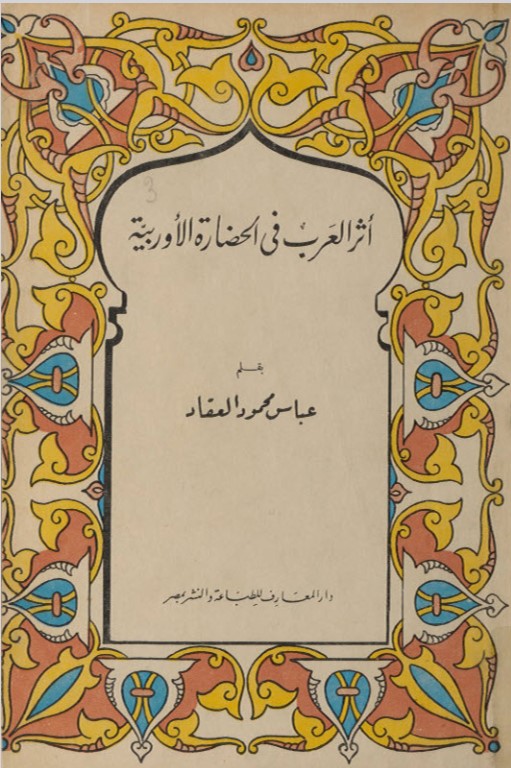 3
أثر العرب في الحضارة الأوربية
بقلم
عباس محمود العقاد
دار المعارف للطباعة والنشر بمصر